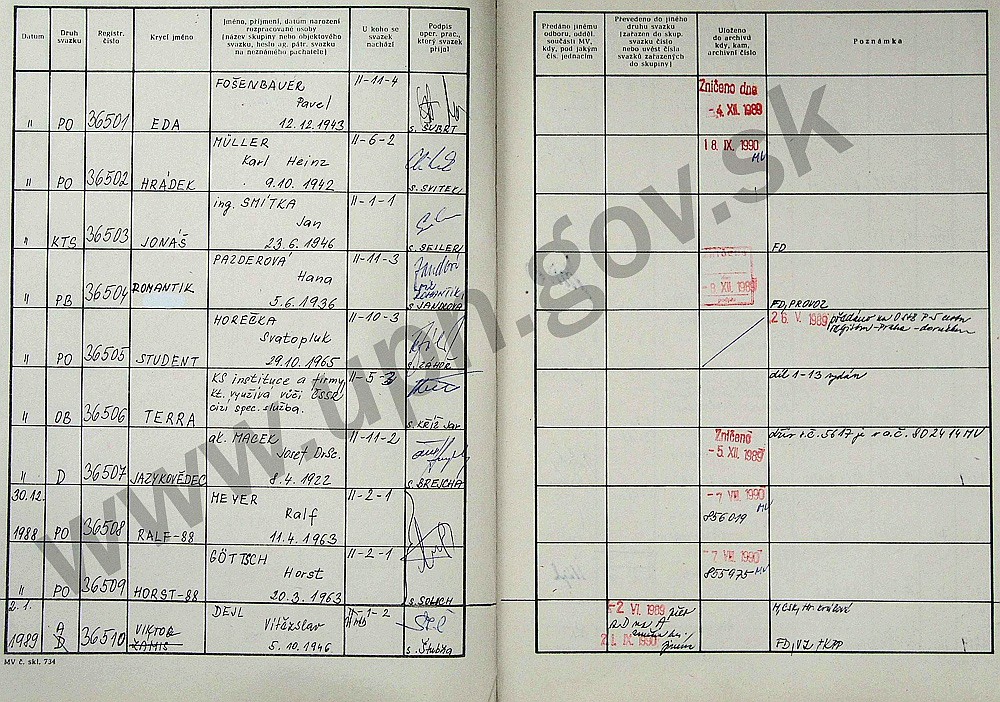 Datum
Druh svazku
Registr. číslo
Krycí jméno
Jméno, příjmení, datum narození
rozpracované osoby
(název skupiny nebo objektového
svazku, heslo ag. pátr. svazku
na neznámého pachatele)
U koho se
svazek
nachází
Podpis
oper. prac.,
který svazek
přijal
Předáno jinému
odboru, odděl.
součásti MV,
kdy, pod jakým
čís. jednacím
Převedeno do jiného
druhu svazku
(zařazen do skup.
svazku číslo
nebo uvést čísla
svazků zařazených
do skupiny)
Uloženo
do archivu
kdy, kam,
archivní číslo
Poznámka
FOŠENBAUER II-11-4
Pavel
" PO 36501 EDA 12.12.1943 s. ŠUBRT
Zničeno dne
-4. XII. 1989
MÜLLER II-6-2
Karl Heinz
" PO 36502 HRÁDEK 9.10.1942 s. SVITEK
18. IX. 1990
MV
ing. SMÍTKA II-1-1
Jan
" KTS 36503 JONÁŠ 23.6.1946 s. SEILER
FD
PAZDEROVÁ II-11-3
Hana
" PB 36504 ROMANTIK 5.6.1936 ROMANTIK s. JANDOVÁ
-8. XII. 1989
FD, PROVOZ
HOREČKA II-10-3
Svatopluk
" PO 36505 STUDENT 29.10.1965 s. ZÁHOŘ
26. V. 1989 předáno na
KS instituce a firmy, II-5-3
kt. využívá vůči ČSSR
cizí spec. služba.
" OB 36506 TERRA s. KŘÍŽ Jar
díl 1-13 vydán
ak. MACEK II-11-2
Josef DrSc.
" D 36507 JAZYKOVĚDEC 8.4.1922 s. BREJCHA
Zničeno
-5. XII. 1989
dřív r.č. 5617 je v a.č. 802414 MV
30.12. MEYER II-2-1
Ralf
1988 PO 36508 RALF-88 11.4.1963
-7. VIII. 1990
MV
856019
GÖTTSCH II-2-1
Horst
" PO 36509 HORST-88 20.3.1963 s. SOLICH
-7. VIII. 1990
MV
855975
2.1. DEJL II-1-2
A VIKTOR Vítězslav
1989 D 36510 5.10.1946 s. Štubňa
-2. VI. 1989
z D na A
21. IX. 1990
FD, VZ, FKPP
MV č. skl. 734
www.upn.gov.sk